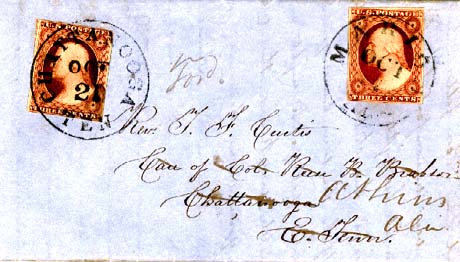 U.S. POSTAGE
THREE CENTS
CHATTANOOGA
OCT
TEN
U.S. POSTAGE
THREE CENTS
OCT
Ford.
Rev. T. F. Curtis
Care of Col.
Chattanooga
Athens
E. Tenn.
Ala